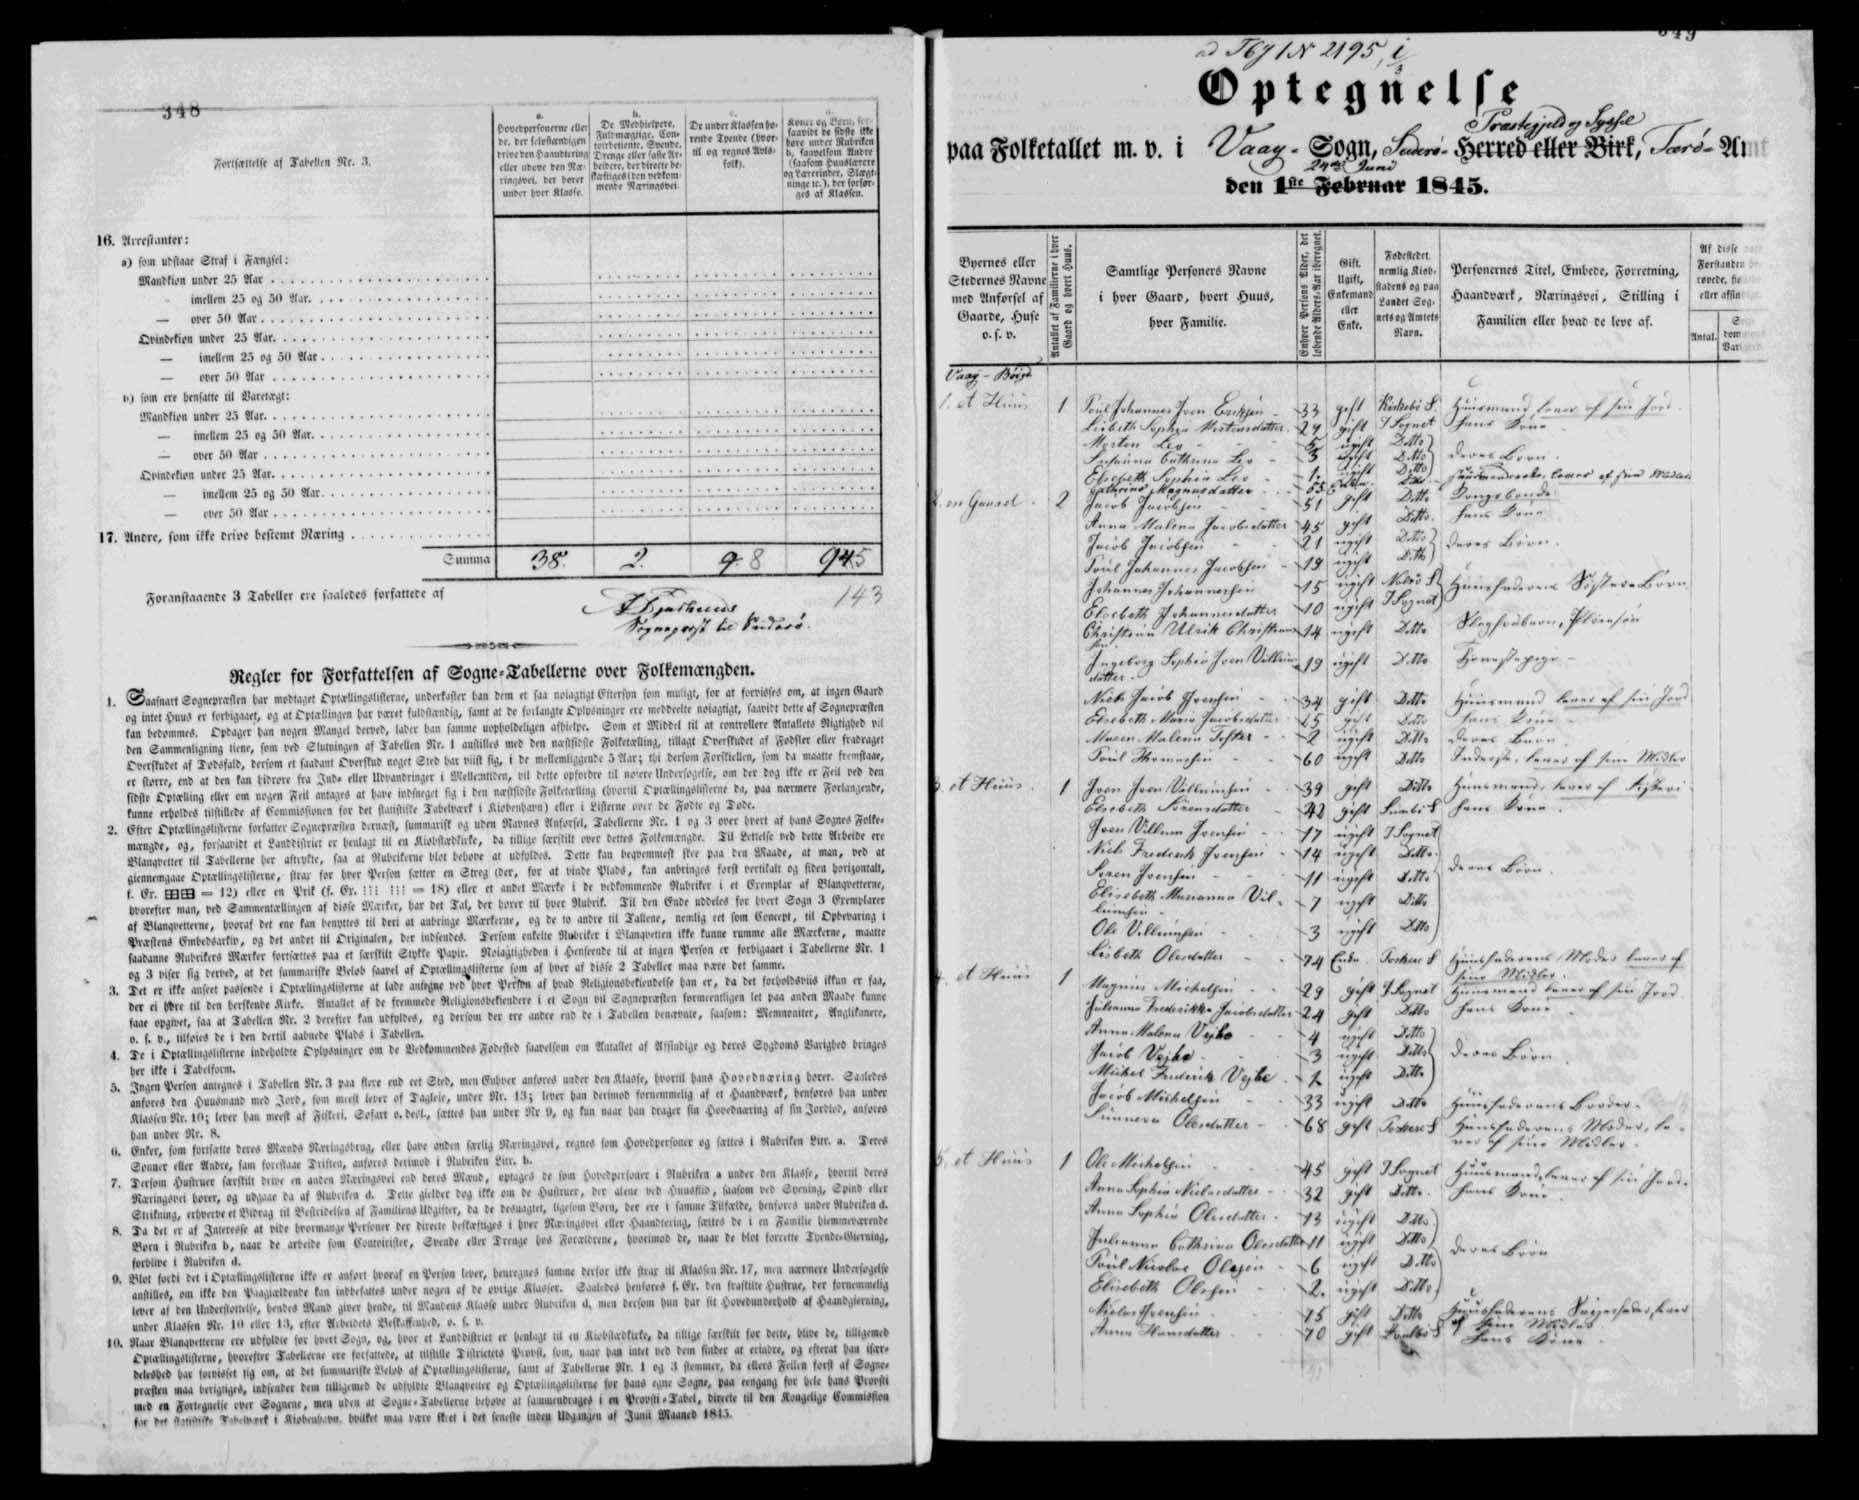 348
Fortsættelse af Tabellen Nr. 3.
a.
Hovedpersonerne eller
de, der selvstændigen
drive den Haandtering
eller udøve den Næ-
ringsvei, der hører
under hver Klasse.
b.
De Medhielpere,
Fuldmægtige, Con-
toirbetiente, Svende,
Drenge eller faste Ar-
beidere, der directe be-
skæftiges i den vedkom-
mende Næringsvei.
c.
De under Klassen hø-
rende Tyende (hvor-
til og regnes Avls-
folk).
Koner og Børn, for-
saavidt de sidste ikke
høre under Rubriken
b, saavelsom Andre
(saasom Huuslærere
og Lærerinder, Slægt-
ninge ic.), der forsør-
ges af Klassen.
16. Arrestanter:
a) som udstaae Straf i Fængsel:
Mandkiøn under 25 Aar
— imellem 25 og 50 Aar.
— over 50 Aar
Qvindekiøn under 25 Aar.
— imellem 25 og 50 Aar
— over 50 Aar
b) som ere hensatte til Varetægt:
Mandkiøn under 25 Aar.
— imellem 25 og 50 Aar.
— over 50 Aar
Qvindekiøn under 25 Aar.
— imellem 25 og 50 Aar.
— over 50 Aar
17. Andre, som ikke drive bestemt Næring
Summa 38. 2. 9. 8 945
Foranstaaende 3 Tabeller ere saaledes forfattede af
143
Sognepræst til Suderø.
Regler for Forfattelsen af Sogne-Tabellerne over Folkemængden.
1. Saasnart Sognepræsten har modtaget Optællingslisterne, underkaster han dem et saa nøiagtigt Eftersyn som muligt, for at forvisses om, at ingen Gaard
og intet Huus er forbigaaet, og at Optællingen har været fuldstændig, samt at de forlangte Oplysninger ere meddeelte nøiagtigt, saavidt dette af Sognepræsten
kan bedømmes. Opdager han nogen Mangel derved, lader han samme uopholdeligen afhielpe. Som et Middel til at controllere Antallets Rigtighed vil
den Sammenligning tiene, som ved Slutningen af Tabellen Nr. 1 anstilles med den næstsidste Folketælling, tillagt Overskudet af Fødsler eller fradraget
Overskudet af Dødsfald, dersom et saadant Overskud noget Sted har viist sig, i de mellemliggende 5 Aar; thi dersom Forskiellen, som da maatte fremstaae,
er større, end at den kan hidrøre fra Ind- eller Udvandringer i Mellemtiden, vil dette opfordre til nøiere Undersøgelse, om der dog ikke er Feil ved den
sidste Optælling eller om nogen Feil antages at have indsneget sig i den næstsidste Folketælling (hvortil Optællingslisterne da, paa nærmere Forlangende,
kunne erholdes tilstillede af Commissionen for det statistiske Tabelværk i Kiøbenhavn) eller i Listerne over de Fødte og Døde.
2. Efter Optællingslisterne forfatter Sognepræsten dernæst, summarisk og uden Navnes Anførsel, Tabellerne Nr. 1 og 3 over hvert af hans Sognes Folke-
mængde, og, forsaavidt et Landdistrict er henlagt til en Kiøbstædkirke, da tillige særskilt over dettes Folkemængde. Til Lettelse ved dette Arbeide ere
Blanqvetter til Tabellerne her aftrykte, saa at Rubrikerne blot behøve at udfyldes. Dette kan beqvemmest skee paa den Maade, at man, ved at
giennemgaae Optællingslisterne, strax for hver Person sætter en Streg (der, for at vinde Plads, kan anbringes først vertikalt og siden horizontalt,
f. Ex. = 12) eller en Prik (f. Ex. = 18) eller et andet Mærke i de vedkommende Rubriker i et Exemplar af Blanqvetterne,
hvorefter man, ved Sammentællingen af disse Mærker, har det Tal, der hører til hver Rubrik. Til den Ende uddeles for hvert Sogn 3 Exemplarer
af Blanqvetterne, hvoraf det ene kan benyttes til deri at anbringe Mærkerne, og de to andre til Tallene, nemlig eet som Concept, til Opbevaring i
Præstens Embedsarkiv, og det andet til Originalen, der indsendes. Dersom enkelte Rubriker i Blanqvetten ikke kunne rumme alle Mærkerne, maatte
saadanne Rubrikers Mærker fortsættes paa et særskilt Stykke Papir. Nøiagtigheden i Henseende til at ingen Person er forbigaaet i Tabellerne Nr. 1
og 3 viser sig derved, at det summariske Beløb saavel af Optællingslisterne som af hver af disse 2 Tabeller maa være det samme.
3. Det er ikke anseet passende i Optællingslisterne at lade antegne ved hver Person af hvad Religionsbekiendelse han er, da det forholdsviis ikkun er faa,
der ei høre til den herskende Kirke. Antallet af de fremmede Religionsbekiendere i et Sogn vil Sognepræsten formeentligen let paa anden Maade kunne
faae opgivet, saa at Tabellen Nr. 2 derefter kan udfyldes, og dersom der ere andre end de i Tabellen benævnte, saasom: Memnoniter, Anglikanere,
o. s. v., tilføies de i den dertil aabnede Plads i Tabellen.
4. De i Optællingslisterne indeholdte Oplysninger om de Vedkommendes Fødested saavelsom om Antallet af Afsindige og deres Sygdoms Varighed bringes
her ikke i Tabelform.
5. Ingen Person antegnes i Tabellen Nr. 3 paa flere end eet Sted, men Enhver anføres under den Klasse, hvortil hans Hovednæring hører. Saaledes
anføres den Huusmand med Jord, som meest lever af Dagleie, under Nr. 13; lever han derimod fornemmelig af et Haandværk, henføres han under
Klassen Nr. 10; lever han meest af Fiskeri, Søfart o. desl., sættes han under Nr 9, og kun naar han drager sin Hovednæring af sin Jordlod, anføres
han under Nr. 8.
6. Enker, som fortsætte deres Mænds Næringsbrug, eller have anden særlig Næringsvei, regnes som Hovedpersoner og sættes i Rubriken Litr. a. Deres
Sønner eller Andre, som forestaae Driften, anføres derimod i Rubriken Litr. b.
7. Dersom Hustruer særskilt drive en anden Næringsvei end deres Mænd, optages de som Hovedpersoner i Rubriken a under den Klasse, hvortil deres
Næringsvei hører, og udgaae da af Rubriken d. Dette gielder dog ikke om de Hustruer, der alene ved Huusflid, saasom ved Syening, Spind eller
Strikning, erhverve et Bidrag til Bestridelsen af Familiens Udgifter, da de desuagtet, ligesom Børn, der ere i samme Tilfælde, henføres under Rubriken d.
8. Da det er af Interesse at vide hvormange Personer der directe beskæftiges i hver Næringsvei eller Haandtering, sættes de i en Familie hiemmeværende
Børn i Rubriken b, naar de arbeide som Contoirister, Svende eller Drenge hos Forældrene, hvorimod de, naar de blot forrette Tyende-Gierning,
forblive i Rubriken d.
9. Blot fordi det i Optællingslisterne ikke er anført hvoraf en Person lever, henregnes samme derfor ikke strax til Klassen Nr. 17, men nærmere Undersøgelse
anstilles, om ikke den Paagieldende kan indbefattes under nogen af de øvrige Klasser. Saaledes henføres f. Ex. den fraskilte Hustrue, der fornemmelig
lever af den Understøttelse, hendes Mand giver hende, til Mandens Klasse under Rubriken d, men dersom hun har sit Hovedunderhold af Haandgierning,
under Klassen Nr. 10 eller 13, efter Arbeidets Beskaffenhed, o. s. v.
10. Naar Blanqvetterne ere udfyldte for hvert Sogn, og, hvor et Landdistrict er henlagt til en Kiøbstædkirke, da tillige særskilt for dette, blive de, tilligemed
Optællingslisterne, hvorefter Tabellerne ere forfattede, at tilstille Districtets Provst, som, naar han intet ved dem finder at erindre, og efterat han især-
deleshed har forvisset sig om, at det summariske Beløb af Optællingslisterne, samt af Tabellerne Nr. 1 og 3 stemmer, da ellers Feilen først af Sogne-
præsten maa berigtiges, indsender dem tilligemed de udfyldte Blanqvetter og Optællingslisterne for hans egne Sogne, paa eengang for hele hans Provsti
med en Fortegnelse over Sognene, men uden at Sogne-Tabellerne behøve at sammendrages i en Provsti-Tabel, directe til den Kongelige Commission
for det statistiske Tabelværk i Kiøbenhavn, hvilket maa være skeet i det seneste inden Udgangen af Junii Maaned 1845.
349
2195
Optegnelse
Præstegjeld og Syssel
paa Folketallet m. v. i Vaag- Sogn, Suderø- Herred eller Birk, Færø- Amt
24de Juni
den 1ste Februar 1845.
Byernes eller
Stedernes Navne
med Anførsel af
Gaarde, Huse
o. s. v.
Antallet af Familierne i hver
Gaard og hvert Huus.
Samtlige Personers Navne
i hver Gaard, hvert Huus,
hver Familie.
Enhver Persons Alder, det
løbende Alders-Aar iberegnet.
Gift,
Ugift,
Enkemand
eller
Enke.
Fødestedet,
nemlig Kiøb-
stadens og paa
Landet Sog-
nets og Amtets
Navn.
Personernes Titel, Embede, Forretning,
Haandværk, Næringsvei, Stilling i
Familien eller hvad de leve af.
Af disse
Forstanden be-
røvede,
eller afsin
Antal.
Vaag - Bøigd
1. et Huus 1 Poul Johannes Joen Eriksen 33 gift Kirkebø S. Huusmand, lever af sin Jord.
Lisbeth Sophia Mortensdatter 29 gift I Sognet hans Kone
Morten Leo 5 ugift Ditto
Susanna Cathrina Leo 3 ugift Ditto deres Børn.
Elsebeth Sophia Leo 1 ugift Ditto
Cathrina Magnusdatter 55 Enke
2. en Gaard 2 Jacob Jacobsen 51 gift Ditto Kongsbonde
Anna Malena Jacobsdatter 45 gift Ditto hans Kone
Jacob Jacobsen 21 ugift Ditto deres Børn.
Poul Johannes Jacobsen 19 ugift Ditto
Johannes Johannesen 15 ugift Huusfaderens Søsters Børn
Elsebeth Johannesdatter 10 ugift I Sognet
Christian Ulrik Christian- 14 ugift Ditto
sen
Ingeborg Sophia Joen Villum- 19 ugift Ditto Tjenestepige
datter
Niels Jacob Joensen 34 gift Ditto Huusmand lever af sin Jord
Elsebeth Maria Jacobsdatter 25 gift Ditto hans Kone
Maren Malena 2 ugift Ditto deres Barn.
Poul Thomasen 60 ugift Ditto Inderste, lever af sine Midler
3. et Huus 1 Joen Joen Villumsen 39 gift Ditto Huusmand, lever af Fiskeri
Elsebeth Sørensdatter 42 gift Sumbø S hans Kone.
Joen Villum Joensen 17 ugift I Sognet
Niels Frederik Joensen 14 ugift Ditto
Søren Joensen 11 ugift Ditto deres Børn
Elisebeth Marianna Vil- 7 ugift Ditto
lumsen
Ole Villumsen 3 ugift Ditto
Lisbeth Olesdatter 74 Enke. Porkere S Huusfaderens Moder lever af
sine Midler.
4. et Huus 1 Magnus Michelsen 29 gift I Sognet Huusmand lever af sin Jord
Julianna Frederikka Jacobsdatter 24 gift Ditto hans Kone
Anna Malena Vejhe 4 ugift Ditto
Jacob Vejhe 3 ugift Ditto deres Børn
Michel Frederik Vejhe 1 ugift Ditto
Jacob Michelsen 33 ugift Ditto Huusfaderens Broder
Sunneva Olesdatter 68 gift Porkere S Huusfaderens Moder, le-
ver af sine Midler.
5. et Huus 1 Ole Michelsen 45 gift I Sognet Huusmand, lever af sin Jord.
Anna Sophia Nielsdatter 32 gift Ditto. hans Kone
Anna Sophia Olesdatter 13 ugift Ditto
Julianna Cathrina Olesdatter 11 ugift Ditto deres Børn
Poul Nicolai Olesen 6 ugift Ditto
Elisebeth Olesen 2 ugift Ditto
Niels Joensen 75 gift Ditto Huusfaderens Svigerfader, lever
af sine Midler
Anna Hansdatter 70 gift hans Kone